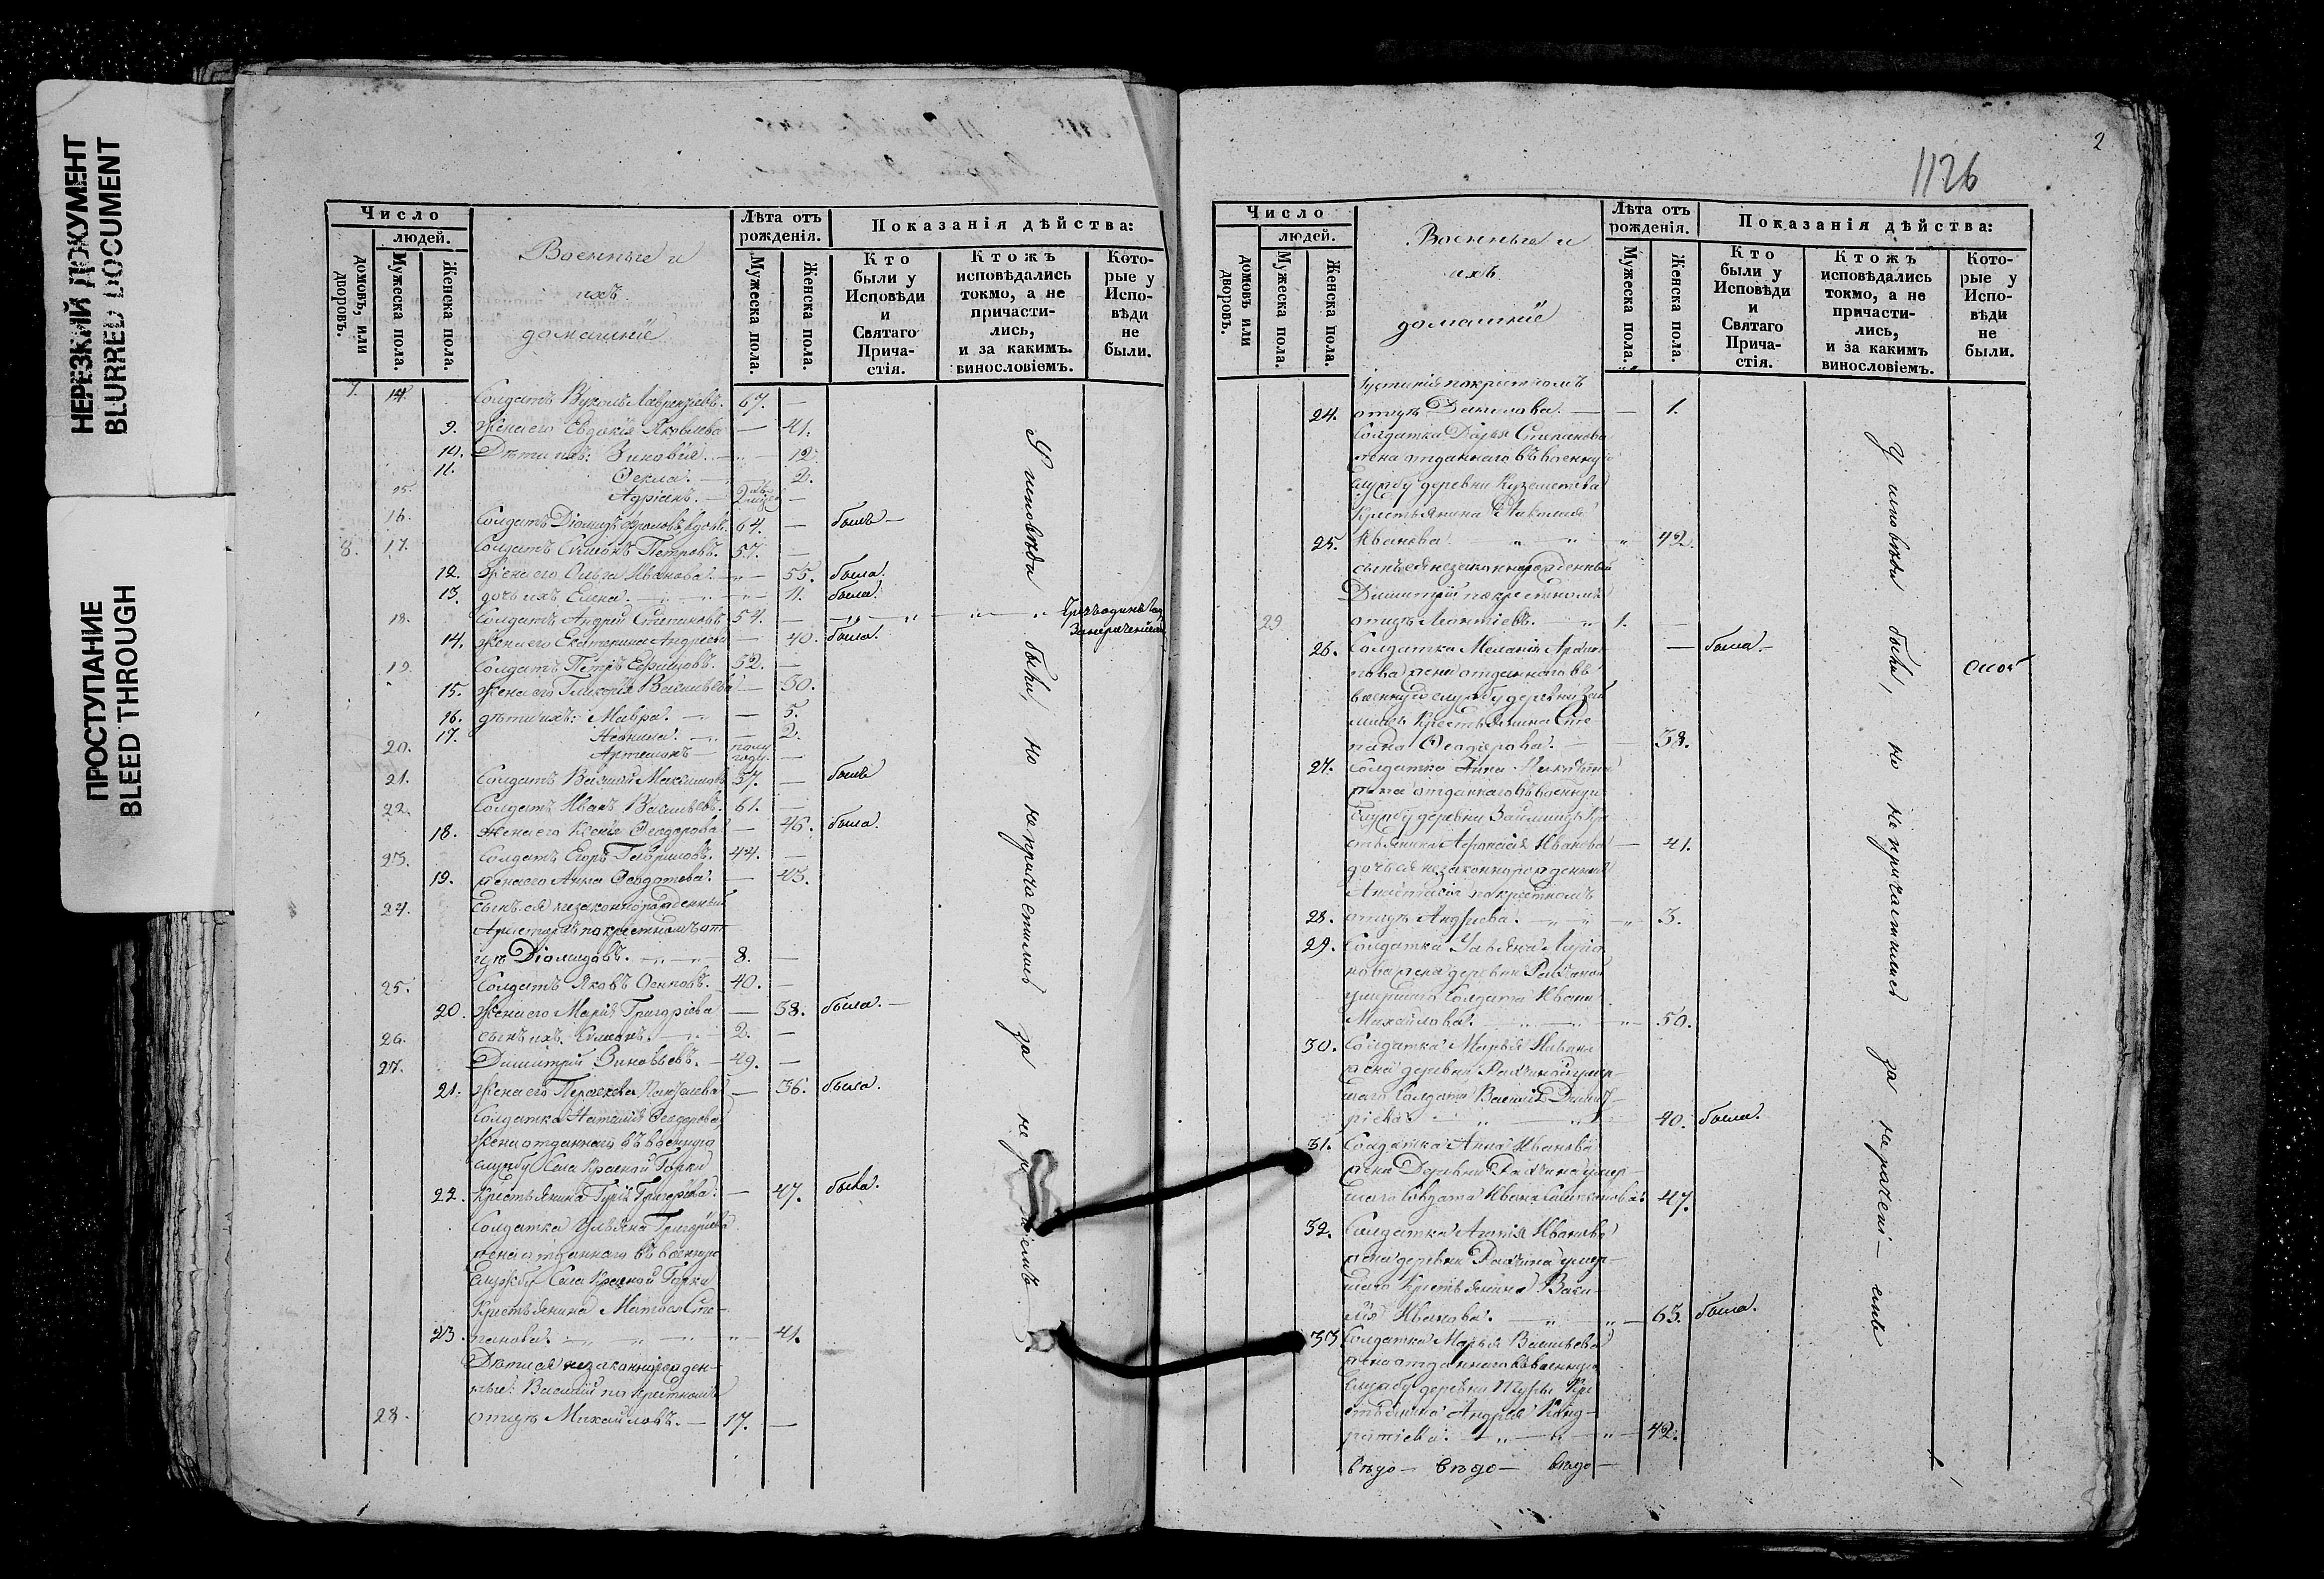 НЕРЕЗКИЙ ДОКУМЕНТ
BLURRED DOCUMENT
ПРОСТУПАНИЕ
BLEED THROUGH
Число
людей.
домовъ, или дворовъ.
Мужеска пола.
Женска пола.
Военные и
ихъ
домашніе
Лѣта отъ рожденія.
Мужеска пола.
Женска пола.
Показанія дѣйства:
Кто были у Исповѣди и Святаго Прича-стія.
Ктожъ исповѣдались токмо, а не причасти-лись, и за какимъ. винословіемъ.
Кото-рые у Испо-вѣди не были.
7. 14. Солдатъ Вуколъ Лаврентьевъ. 67. —
9. Жена его Евдокія Яковлева — 41.
10. Дѣти ихъ: Зиновія. — 12.
11. Ѳекла. — 2.
15. Адріанъ. — 2
16. Солдатъ Діомидъ Фроловъ вдовъ. 64. — былъ —
8. 17. Солдатъ Симеонъ Петровъ. 57. —
12. Жена его Ольга Иванова. — 55. была.
13. дочь ихъ Елена. — 11. была.
18. Солдатъ Андрей Степановъ 54. —
14. Жена его Екатерина Андреева — 40. была.
19. Солдатъ Петръ Ефимовъ. 52. —
15. Жена его Гликерія Васильева — 30.
16. дѣти ихъ: Мавра. — 5.
17. Неонила. — 2.
20. Артемонъ — полу году. —
21. Солдатъ Василій Максимовъ 57. — былъ
22. Солдатъ Иванъ Васильевъ. 61. —
18. жена его Ксенія Ѳеодорова — 46. была.
23. Солдатъ Егоръ Гавриловъ. 44. —
19. жена его Анна Ѳеодотова. — 43.
24. сынъ ея незаконнорожденный
по крестномъ от
цѣ Діомидовъ. — 8. —
25. Солдатъ Яковъ Осиповъ. 40. —
20. Жена его Марія Григорьева — 38. была. —
26. сынъ ихъ Симеонъ. — 2. —
27. Димитрій Зиновьевъ. — 49. —
21. Жена его Параскева — 36. была.
Солдатка Наталія Ѳеодорова
жена отданнаго въ военную
службу Села Красной Горки
22. Крестьянина Гурія Григорьева. — 47. была.
Солдатка Ульяна Григорьева
жена отданнаго въ военную
службу Села Красной Горки
Крестьянина Матвея Сте-
23. панова. — 41.
Дѣти ея незаконнорожден-
ные: Василій по крестномъ
28. отцѣ Михайловъ. — 17. —
У исповѣди были, но не причастились за не
Чрезъ одинъ годъ
За нераченіемъ
2
1126
Число
людей.
домовъ или дворовъ.
Мужеска пола.
Женска пола.
Военные и
ихъ
домашніе
Лѣта отъ рожденія.
Мужеска пола.
Женска пола.
Показанія дѣйства:
Кто были у Исповѣди и Святаго Прича-стія.
Ктожъ исповѣдались токмо, а не причасти-лись, и за какимъ винословіемъ.
Кото-рые у Испо-вѣди не были.
Іустинія по крестномъ
24. отцѣ Данилова. — — 1.
Солдатка Дарья Степанова
жена отданнаго въ военную
службу деревни
Крестьянина Николая
25. Иванова. 42.
сынъ ея незаконнорожденный
Димитрій по крестномъ
29. отцѣ Леонтьевъ. 1. —
26. Солдатка Меланія — была. —
жена отданнаго въ
военную службу деревни Зай
мищъ Крестьянина Сте-
пана Ѳеодорова. — 38.
27. Солдатка Анна Никитина
жена отданнаго въ военную
службу деревни Займищъ Кре
стьянина Аѳанасія Иванова — 41.
дочь ея незаконнорожденная
Анастасія по крестномъ
28. отцѣ Андреева. — 3.
29. Солдатка Ульяна Ларіо
нова жена деревни
умершаго Солдата Ивана
Михайлова. 50.
30. Солдатка Марья
жена деревни умер-
шаго Солдата Василія Димит-
ріева. 40. была.
31. Солдатка Анна Иванова
жена Деревни умер-
шаго Солдата Ивана 47.
32. Солдатка Агафія Иванова
жена деревни умер-
шаго Крестьянина Васи-
лія Иванова. — 63. была.
33 Солдатка Марья Васильева
жена отданнаго въ военную
службу деревни Кре
стьянина Андрея Конд-
ратіева. — 42.
вѣдо — вѣдо — вѣдо —
У исповѣди были, но не причастились за нерачені — емъ